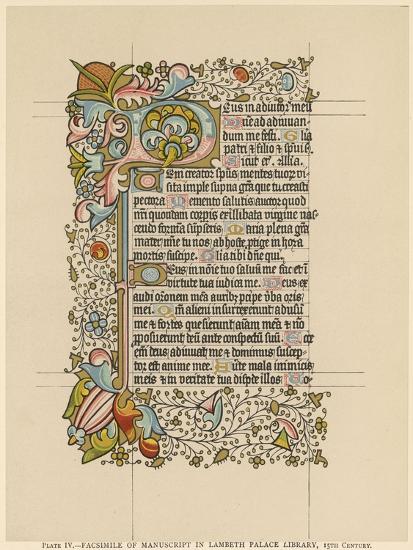 Deus in adiutor meū
Dñe ad adiuvan
dum me festī. Glīa
patri & filio & spūi s
Sicut er̄. Allīa.
Veni creator spūs mentes tuor̄ vi
sita imple supna grā que tu creasti
pectora Memento salutis auctor quod
nr̄i quondam corpis ex illibata virgine nas
cendo formā sūpseris Maria plena grā
mater mīe tu nos ab hoste ptege in hora
mortis suscipe. Glīa tibi dñe qui.
Deus in nōie tuo saluū me fac et ī
virtute tua iudica me. Deus ex
audi oronem meā aurib; pcipe vba oris
mei. Qm̄ alieni insurrexerunt adusū
me & fortes quesierunt aīam meā & nō
pposuerunt deū ante conspectū suū. Ecce
enī deus adiuvat me & dominus suscep
tor est anime mee. Auerte mala inimicis
meis & in veritate tua dispde illos
PLATE IV.—FACSIMILE OF MANUSCRIPT IN LAMBETH PALACE LIBRARY, 15TH CENTURY.